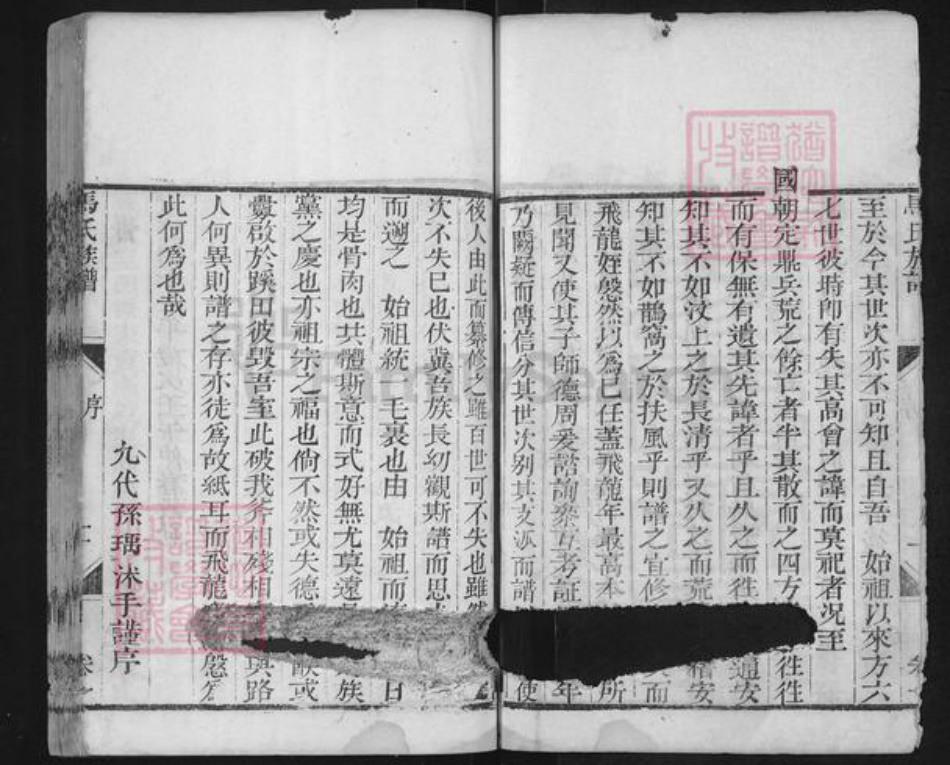 馬氏族譜
至於今其世次亦不可知且自吾 始祖以來方六
七世彼時卽有失其高曾之諱而莫祀者況至
國朝定鼎兵荒之餘亡者半其散而之四方 往往
而有保無有遺其先諱者乎且久之而徃 通安
知其不如汶上之於長清乎又久之而荒 稽安
知其不如鵲窩之於扶風乎則譜之宜修 而
飛龍姪慇然以爲已任蓋飛龍年最高本 所
見聞又使其子師德周爰諮詢叅互考証 年
乃闕疑而傳信分其世次别其支派而譜 使
後人由此而纂修之雖百世可不失也雖然
次不失已也伏冀吾族長幼觀斯譜而思
而遡之 始祖統一毛裏也由 始祖而 日
均是骨肉也共體斯意而式好無尤莫遠 族
黨之慶也亦祖宗之福也倘不然或失德 或
釁啟於蹊田彼毀吾室此破我斧相殘相 與路
人何異則譜之存亦徒爲故紙耳而飛龍 慇爲
此何爲也哉
九代孫瑀沐手謹序
馬氏族譜
序
二
卷之